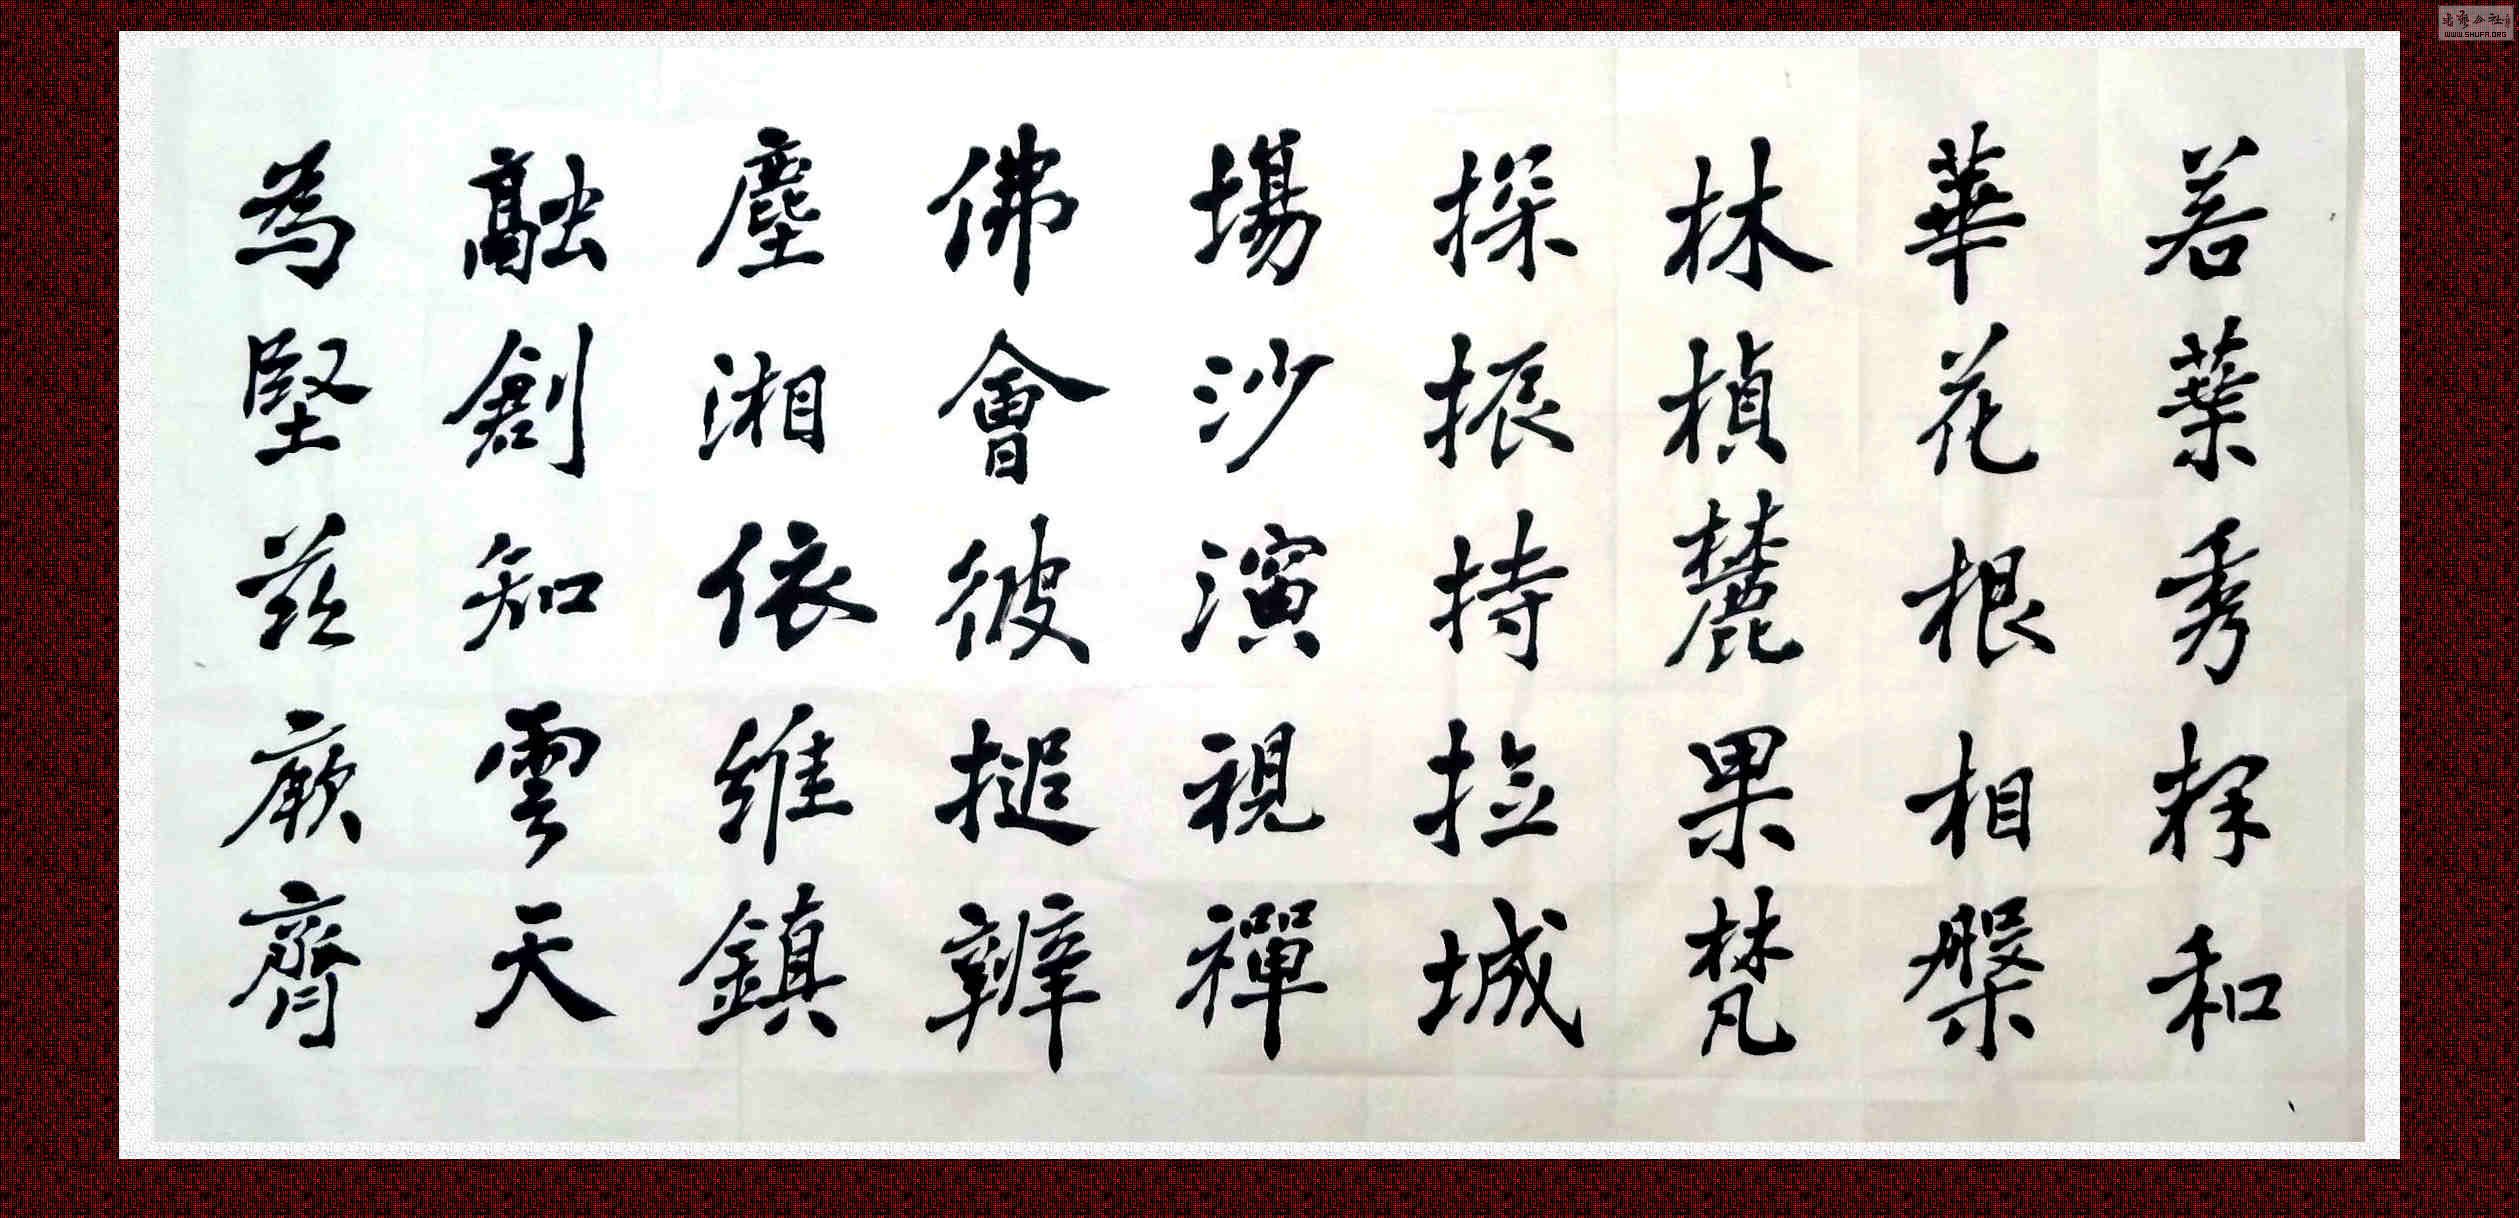 若葉秀釋和
華花根相槃
林楨麓果梵
探振持拉城
場沙演視禪
佛會彼搥辦
塵湘依維鎮
融創知雲天
為堅茲厥齊
WWW.SHUFA.ORG